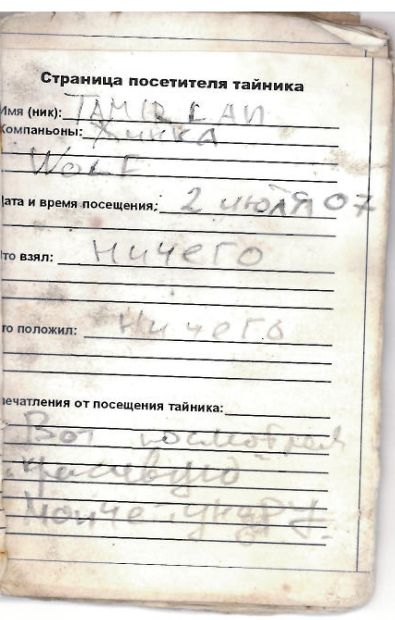 Страница посетителя тайника
Имя (ник): TAMIRLAN
Компаньоны: Хинка
WOLF
Дата и время посещения: 2 июля 07
то взял: Ничего
то положил: Ничего
печатления от посещения тайника:
Вот посмотрел
красивую